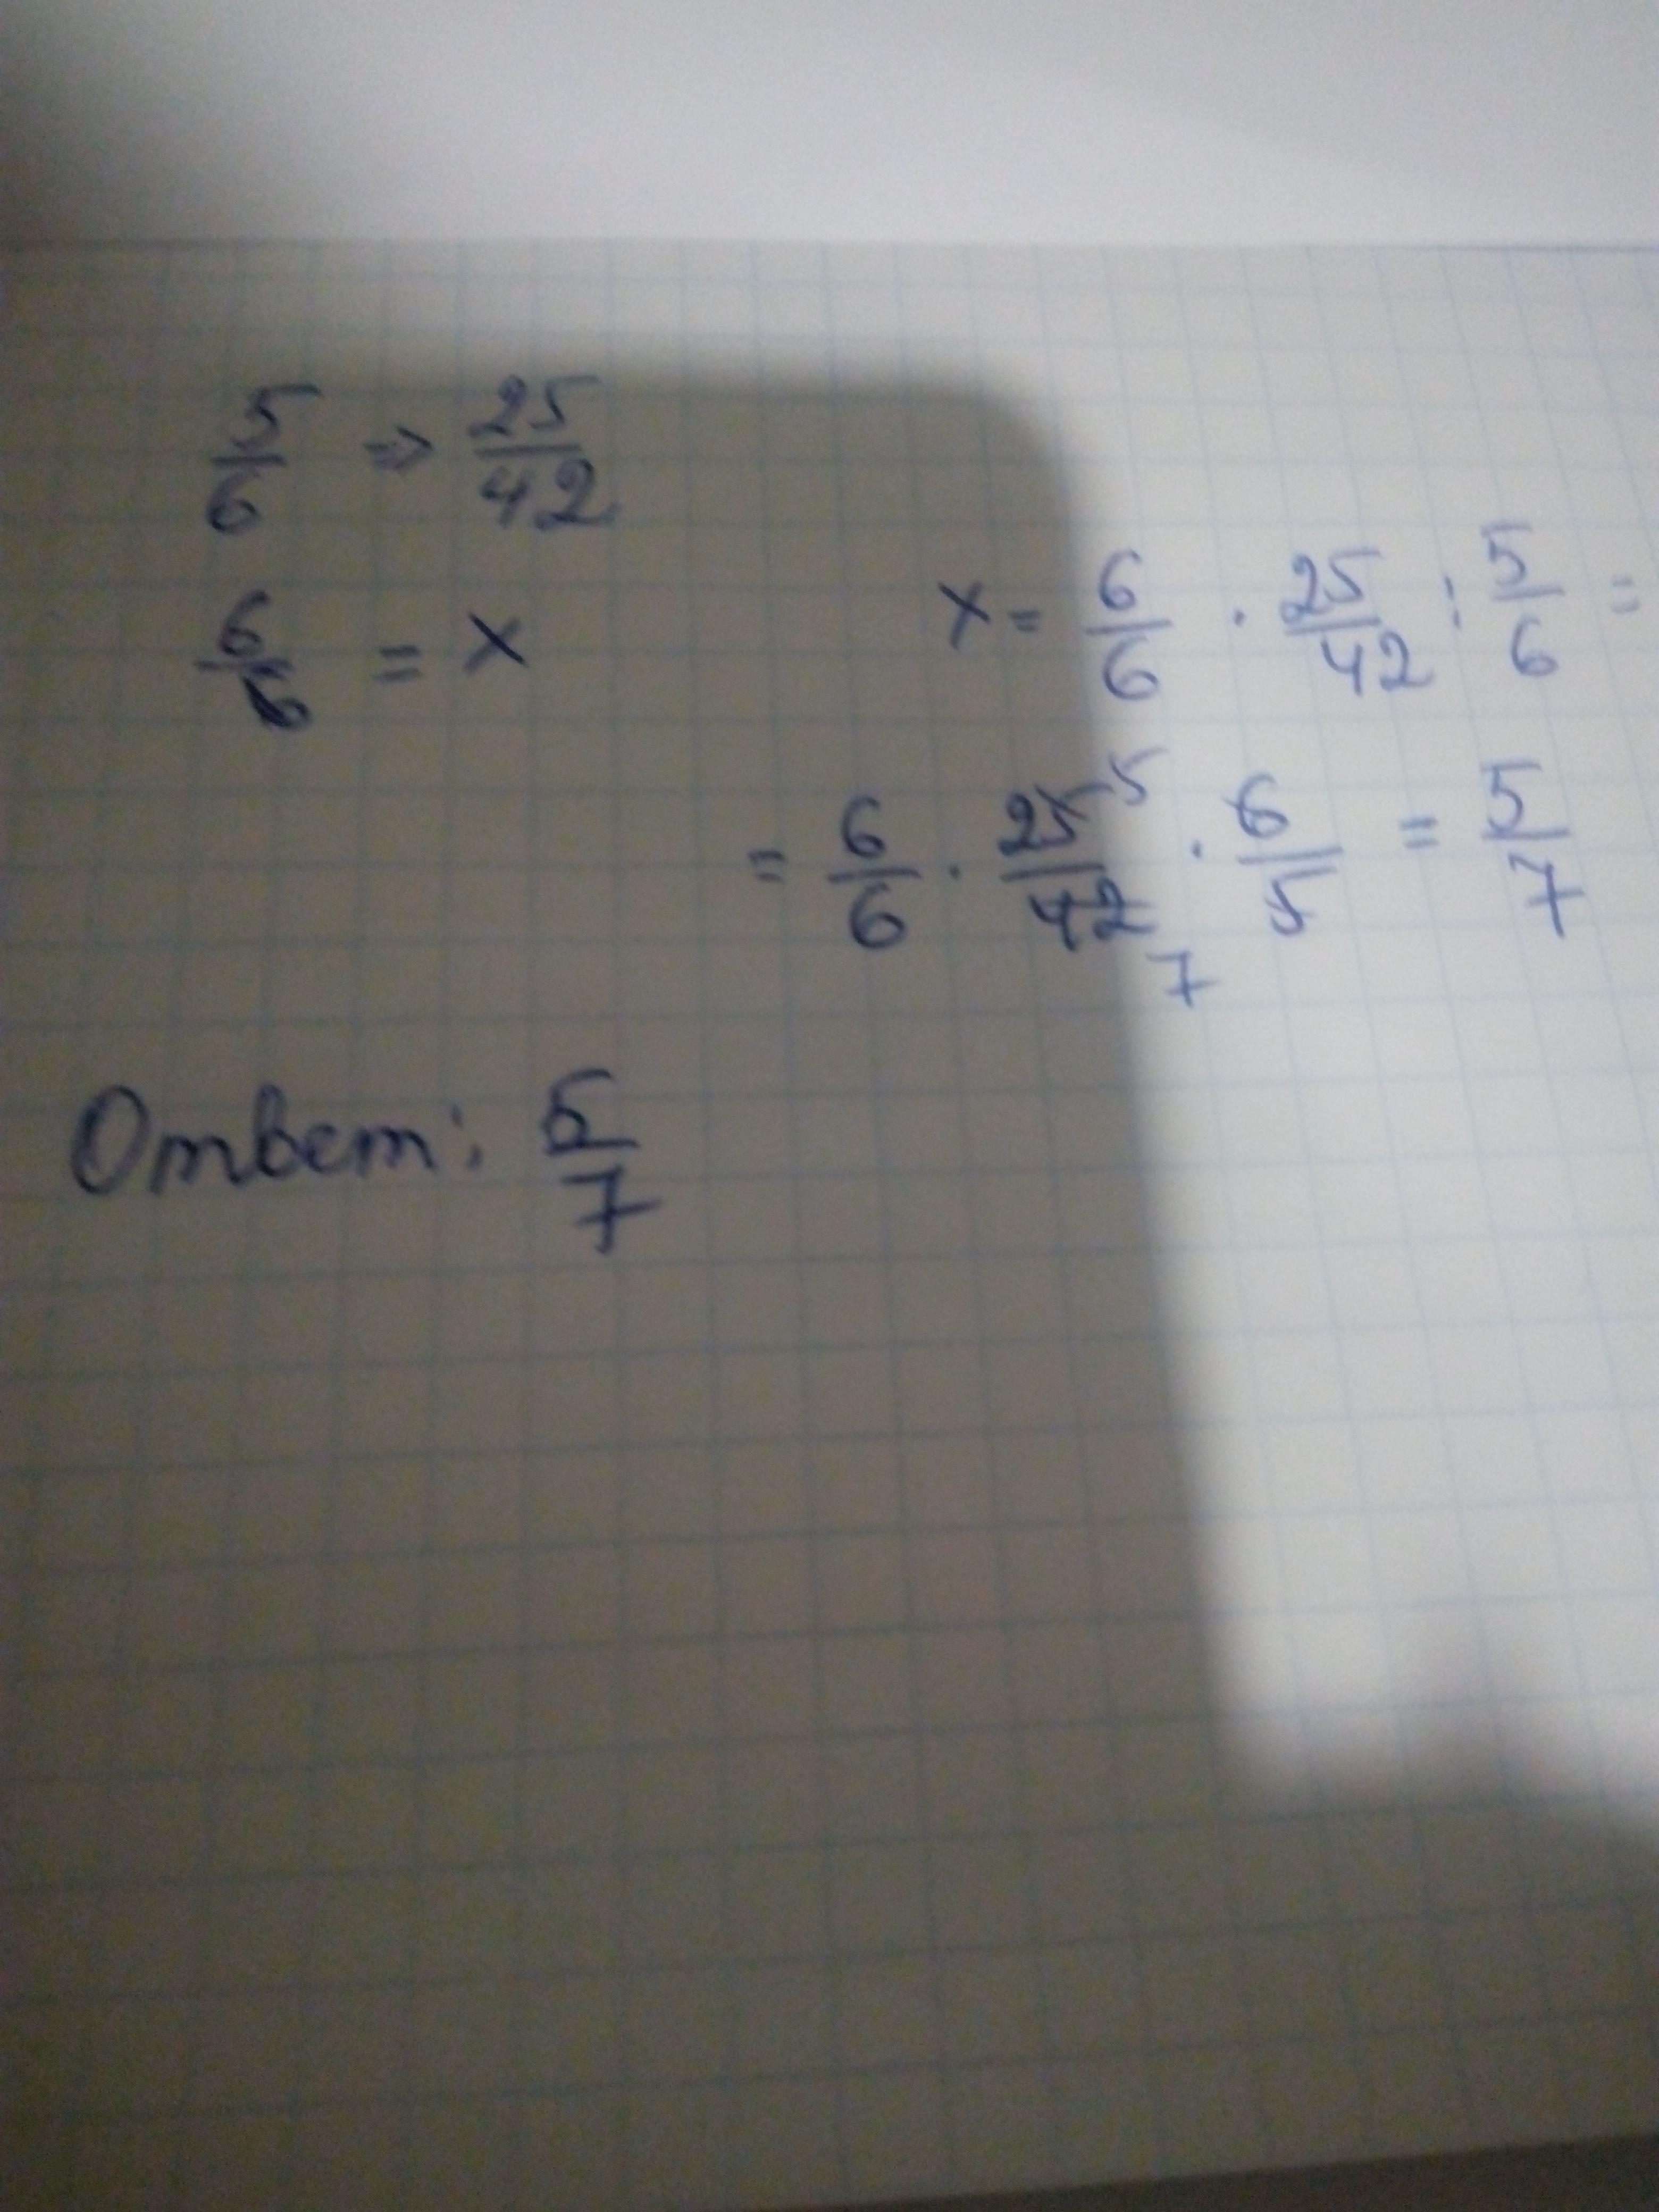 5/6 => 25/42
6/6 = x
x = 6/6 · 25/42 : 5/6 =
= 6/6 · 25/42 5 7 · 6/5 = 5/7
Ответ: 5/7